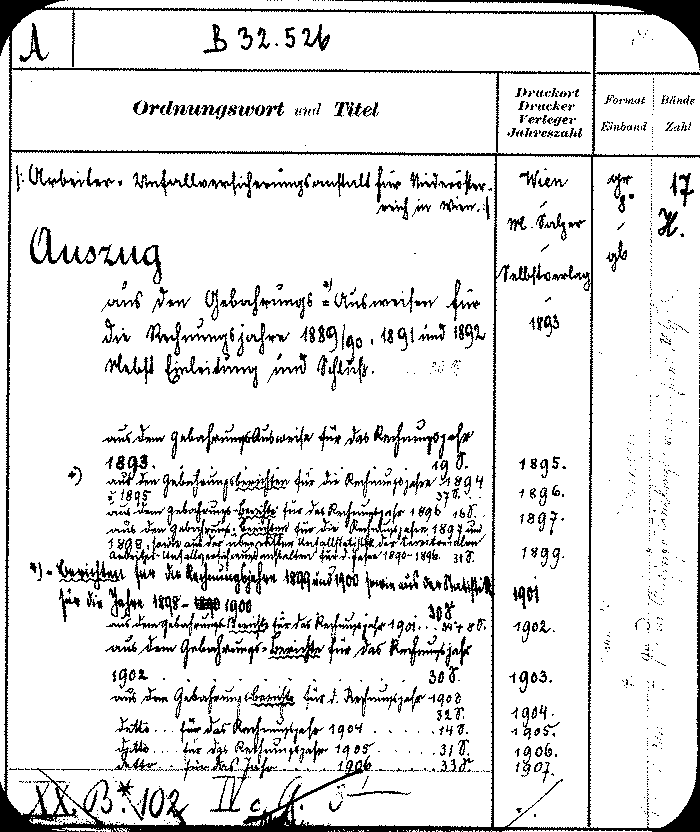 A
B 32.526
Ordnungswort und Titel
Druckort
Drucker
Verleger
Jahreszahl
Format
Einband
Bände
Zahl
/: Arbeiter-Unfallversicherungsanstalt für Niederöster-
reich in Wien. :/
Wien
M. Salzer
Selbstverlag
1893
gr
8°
gb
17
H.
Auszug
aus den Gebahrungs-*)Ausweisen für
die Rechnungsjahre 1889/90, 1891 und 1892
Nebst Einleitung und Schluß.
aus dem Gebahrungs Ausweise für das Rechnungsjahr
1893. 19 S. 1895.
*) aus den Gebahrungsberichten für die Rechnungsjahre 1894
u 1895 37 S. 1896.
aus dem Gebahrungs-berichte für das Rechnungsjahr 1896 16 S. 1897.
aus den Gebahrungs-berichten für die Rechnungsjahre 1897 und
1898, sowie aus der Unfallstatistik der territorialen
Arbeiter-Unfallversicherungsanstalten für d. Jahre 1890-1896. 31 S. 1899.
*) - berichten für die Rechnungsjahre 1899 und 1900 sowie aus der Statistik
für die Jahre 1898 - 1900 30 S. 1901
aus dem Gebahrungs-Berichte für das Rechnungsjahr 1901 + 8 S. 1902.
aus dem Gebahrungs-Berichte für das Rechnungsjahr
1902 30 S. 1903.
aus dem Gebahrungsberichte für d. Rechnungsjahr 1903
32 S. 1904.
detto ... für das Rechnungsjahr 1904 14 S. 1905.
detto ... für das Rechnungsjahr 1905 31 S. 1906.
detto ... für das Jahr 1906 33 S. 1907.
XX. B.* 102 IV c. G. 5